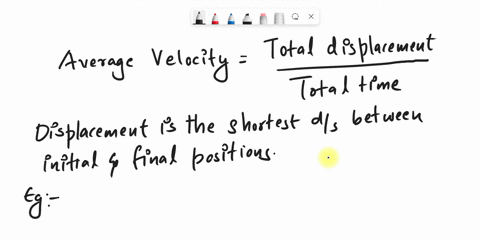 Average Velocity = Total displacement / Total time
Displacement is the shortest d/s between
initial & final positions.
Eg:-